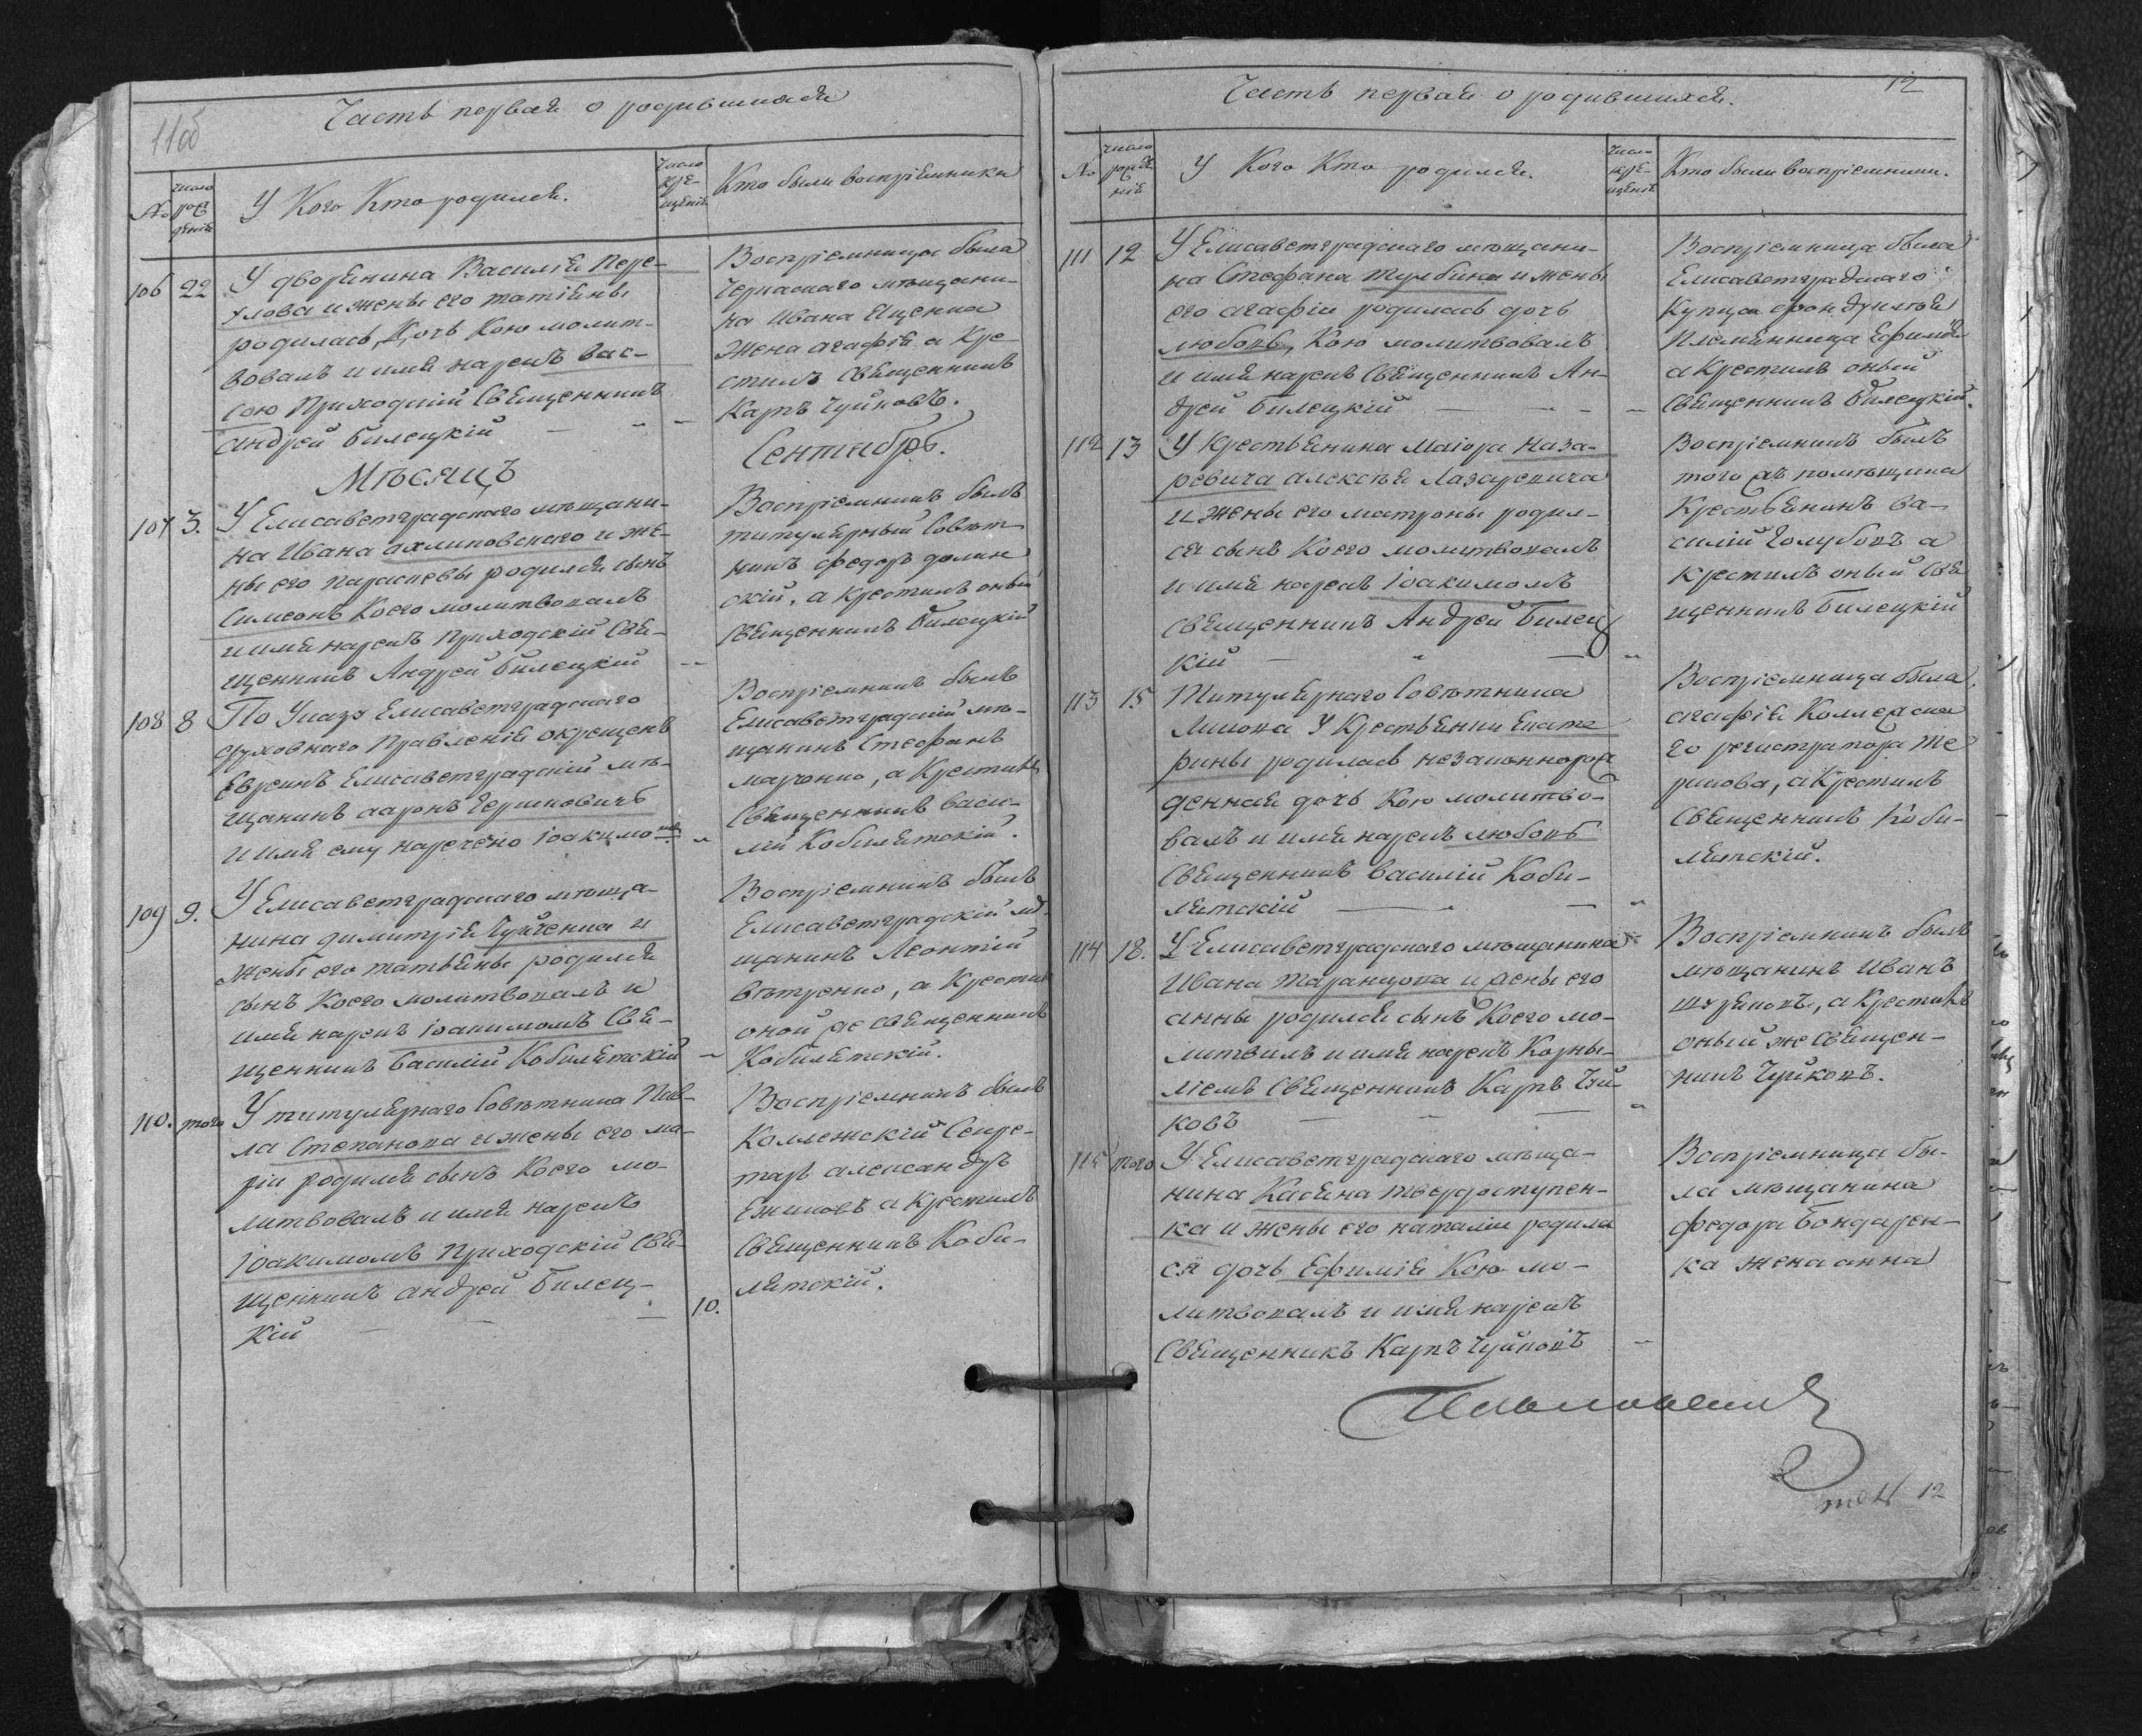 11об
Часть первая о родившихся
№
число рождения
У Кого Кто родился.
Число крещения
Кто были воспріемники
106 22
У дворянина Василія Пере-
ихова и жены его татіяны
родилась, Дочь Кою молит-
вовалъ и имя нарекъ Вас-
сою Приходскій Священникъ
андрей билецкій
Воспріемница была
Черкаскаго мѣщани-
на Ивана Ищенка
Жена агафія а Кре
стилъ Священникъ
Карпъ Чуйковъ.
Мѣсяцъ Сентябрь.
107 3.
У Елисаветградскаго мѣщани-
на Ивана охлиповскаго и же-
ны его параскевы родился сынъ
Симеонъ Коего молитвовалъ
и имя нарекъ Приходскій Свя-
щенникъ Андрей билецкій
Воспріемникъ былъ
титулярный Совѣт
никъ федоръ долин
скій, а Крестилъ оный
Священникъ билецкій
108 8
По Указу Елисаветградскаго
духовнаго Правленія окрещенъ
Евреинъ Елисаветградскій мѣ-
щанинъ ааронъ Гершковичъ
и имя ему наречено Іоакимомъ
Воспріемникъ былъ
Елисаветградскій мѣ-
щанинъ Стефанъ
марченко, а Крестилъ
Священникъ васи-
лій Кобилятскій.
109 9.
У Елисаветградскаго мѣща-
нина димитрія Куйченка и
жены его татьяны родился
сынъ Коего молитвовалъ и
имя нарекъ Іоакимомъ Свя-
щенникъ василій Кобилятскій
Воспріемникъ былъ
Елисаветградскій мѣ-
щанинъ Леонтій
вѣтренко, а Крестилъ
оной же священникъ
Кобилятскій.
110. того
У титулярнаго Совѣтника Пав-
ла Степанова и жены его ма-
ріи родился сынъ Коего мо-
литвовалъ и имя нарекъ
Іоакимомъ Приходскій Свя-
щенникъ андрей билец-
кій
10.
Воспріемникъ былъ
Коллежскій Секре-
тарь александръ
Ежиковъ а Крестилъ
Священникъ Коби-
лятскій.
12
Часть первая о родившихся.
№
число рожденія
У Кого Кто родился.
Число крещенія
Кто были воспріемники.
111 12
У Елисаветградскаго мѣщани-
на Стефана тулбина и жены
его агафіи родилась дочь
любовь, Кою молитвовалъ
и имя нарекъ Священникъ Ан-
дрей билецкій
Воспріемница была
Елисаветградскаго
Купца
племянница Ефимія
а Крестилъ оный
Священникъ билецкій.
112 13
У Крестьянина Маіора Наза-
ревича алексѣя Лазаревича
и жены его матроны родил-
ся сынъ Коего молитвовалъ
и имя нарекъ Іоакимомъ
Священникъ Андрей Билец
кій
Воспріемникъ былъ
того жъ помѣщика
Крестьянинъ ва-
силій Голубовъ а
Крестилъ оный Свя
щенникъ Билецкій
113 15
Титулярнаго Совѣтника
Лишова У Крестьянки Екате
рины родилась незаконнорож
денная дочь Кою молитво-
валъ и имя нарекъ любовь
Священникъ василій Коби-
лятскій
Воспріемница была
агафія Коллежска
го регистратора Те
рихова, а Крестилъ
Священникъ Коби-
лятскій.
114 18.
У Елисаветградскаго мѣщанина
Ивана Таранцова и жены его
анны родился сынъ Коего мо-
литвилъ и имя нарекъ Корны-
ліемъ Священникъ Карпъ Чуй-
ковъ
Воспріемникъ былъ
мѣщанинъ Иванъ
а Крестилъ
оный же Священ-
никъ Чуйковъ.
115 того
У Елисаветградскаго мѣща-
нина Касіяна твердоступен-
ка и жены его наталіи родила
ся дочь Ефимія Кою мо-
литвовалъ и имя нарекъ
Священникъ Карпъ Чуйковъ
Воспріемница бы-
ла мѣщанина
федора бондарен-
ка жена анна
12